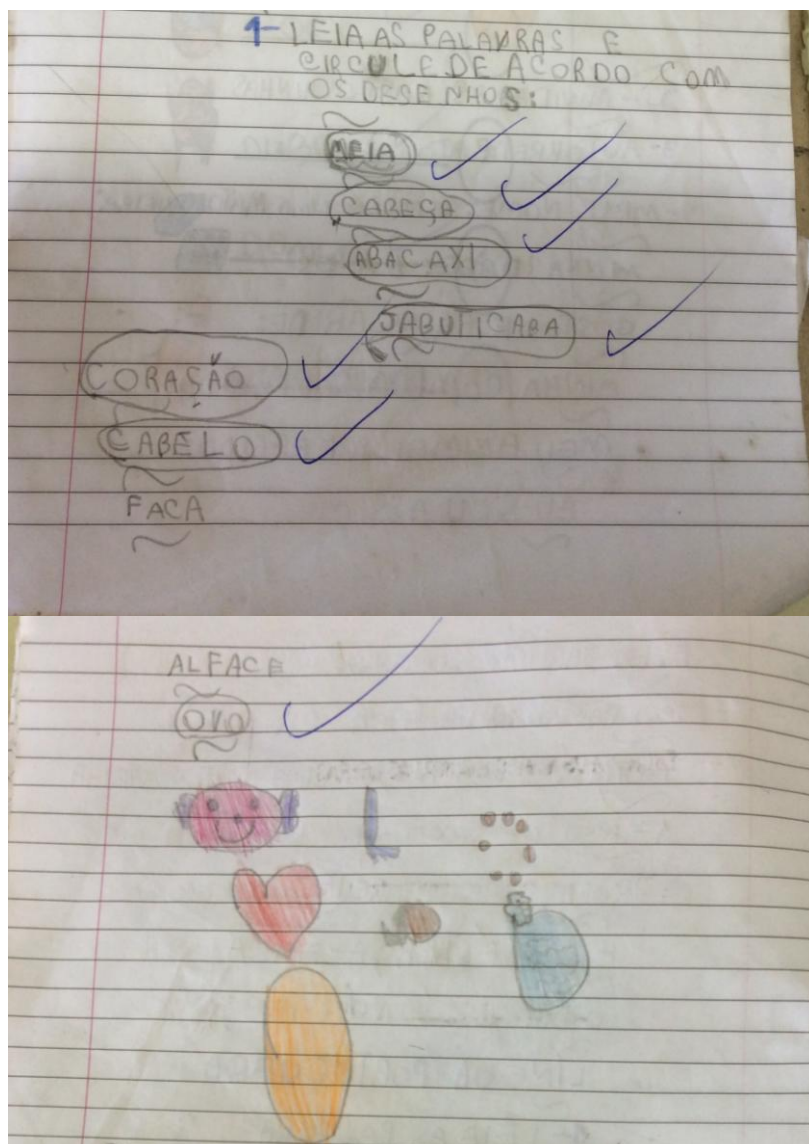 1- LEIA AS PALAVRAS E
CIRCULE DE ACORDO COM
OS DESENHOS:
MEIA
CABEÇA
ABACAXI
JABUTICABA
CORAÇÃO
CABELO
FACA
ALFACE
OVO